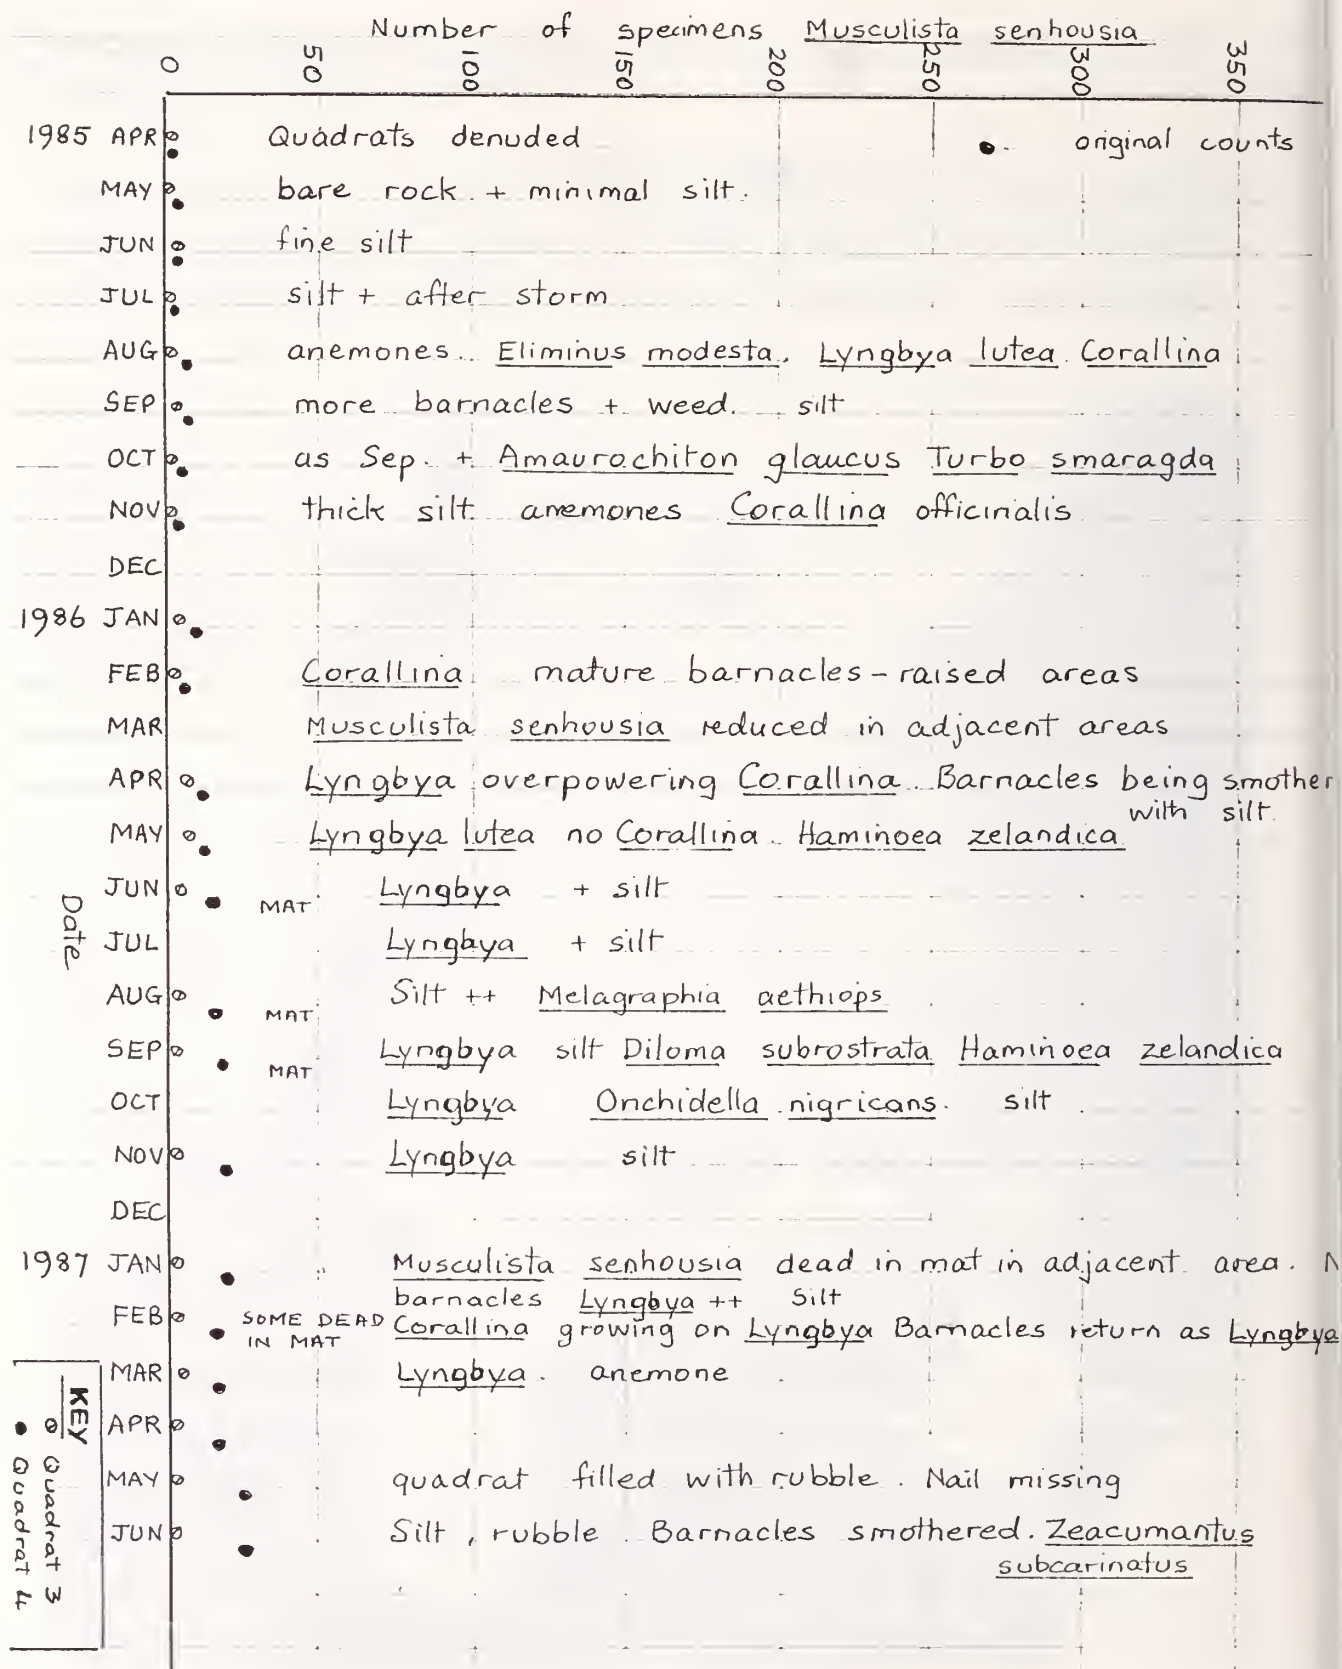 Number of specimens Musculista senhousia
0 50 100 150 200 250 300 350
1985 APR Quadrats denuded original counts
MAY bare rock + minimal silt.
JUN fine silt
JUL silt + after storm
AUG anemones Eliminus modesta. Lyngbya lutea Corallina
SEP more barnacles + weed. silt
OCT as Sep. + Amaurochiton glaucus Turbo smaragda
NOV thick silt anemones Corallina officinalis
DEC
1986 JAN
FEB Corallina mature barnacles - raised areas
MAR Musculista senhousia reduced in adjacent areas
APR Lyngbya overpowering Corallina Barnacles being smother
with silt.
MAY Lyngbya lutea no Corallina Haminoea zelandica
JUN MAT Lyngbya + silt
Date
JUL Lyngbya + silt
AUG MAT Silt ++ Melagraphia aethiops
SEP MAT Lyngbya silt Diloma subrostrata Haminoea zelandica
OCT Lyngbya Onchidella nigricans. silt
NOV Lyngbya silt
DEC
1987 JAN Musculista senhousia dead in mat in adjacent area. N
barnacles Lyngbya ++ Silt
FEB SOME DEAD IN MAT Corallina growing on Lyngbya Barnacles return as Lyngbya
MAR Lyngbya. anemone
APR
MAY quadrat filled with rubble. Nail missing
JUN Silt, rubble. Barnacles smothered. Zeacumantus
subcarinatus
KEY
Quadrat 3
Quadrat 4